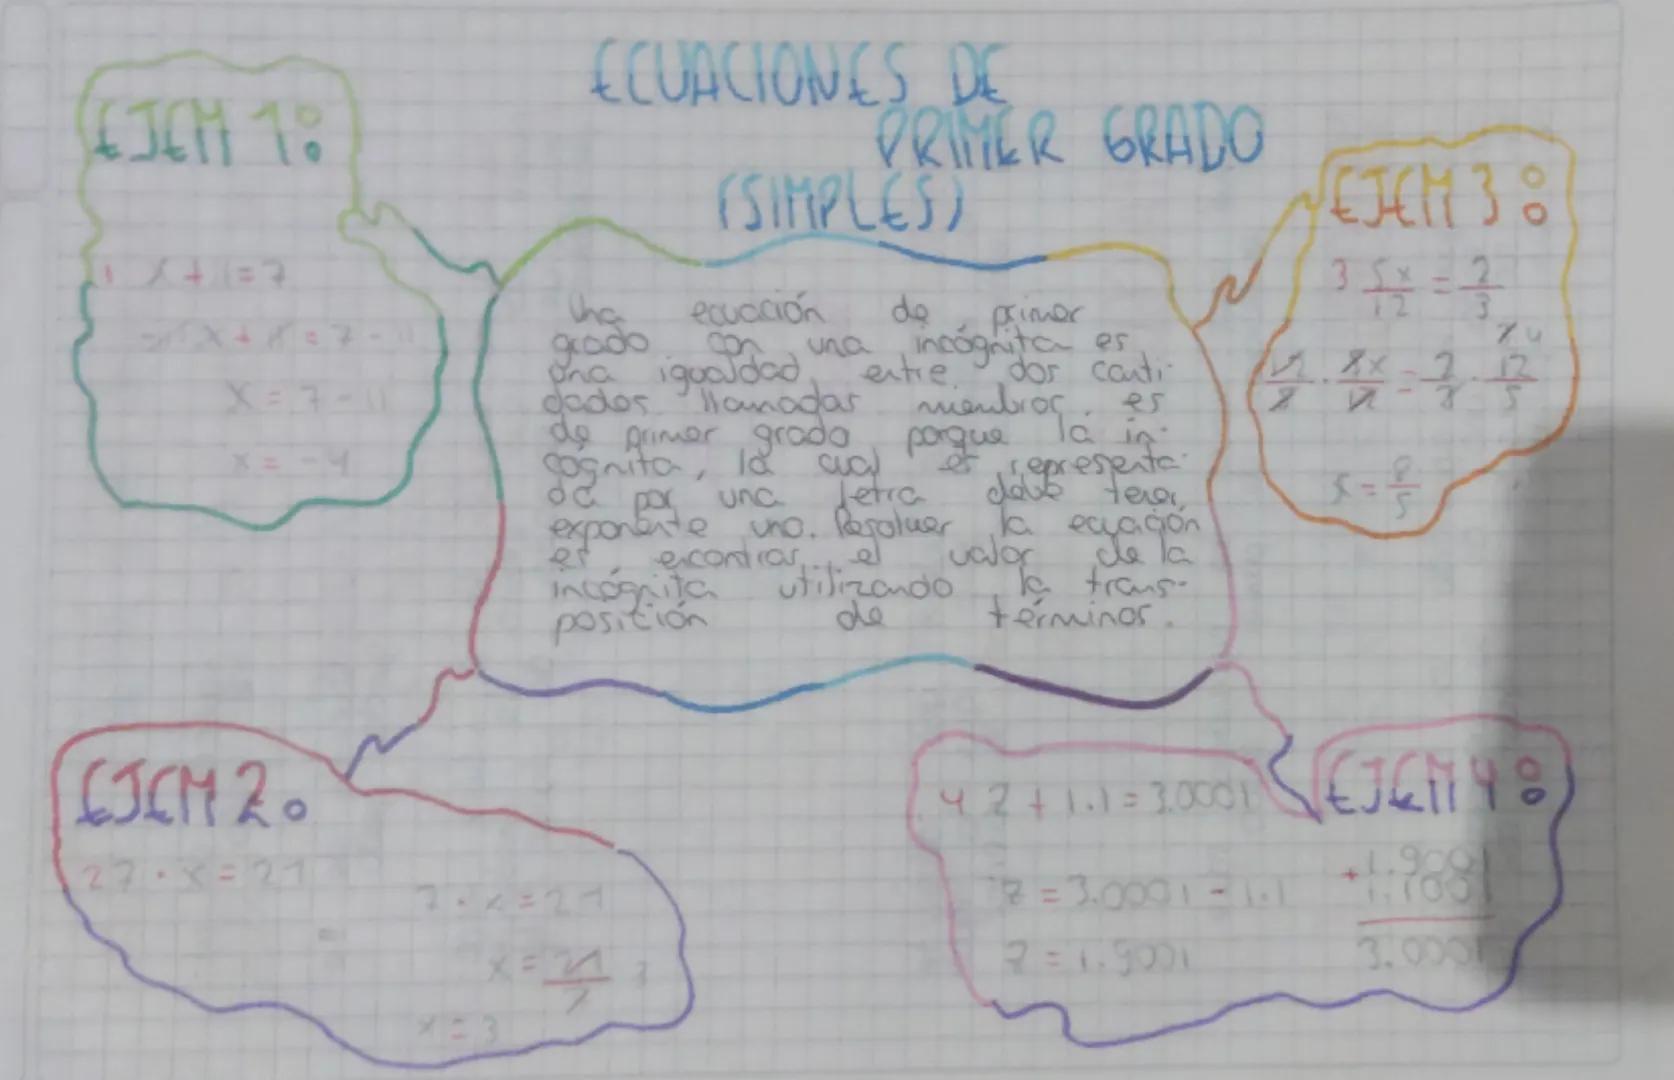 ECUACIONES DE
PRIMER GRADO
(SIMPLES)
EJEM 1:
1 x + 11 = 7
- 11 x + 11 = 7 - 11
x = 7 - 11
x = - 4
Una ecuación de primer
grado con una incógnita es
una igualdad entre dos canti-
dades llamadas miembros. es
de primer grado porque la in-
cógnita, la cual es representa-
da por una letra debe tener
exponente uno. Resolver la ecuación
es encontrar el valor de la
incógnita utilizando la trans-
posición de términos.
EJEM 3:
3 5x/12 = 2/3
x = 8/5
EJEM 2:
2 7 · x = 21
7 · x = 21
x = 21/7 3
x = 3
EJEM 4:
4 z + 1.1 = 3.0001
z = 3.0001 - 1.1
z = 1.9001
+ 1.9001
3.0001